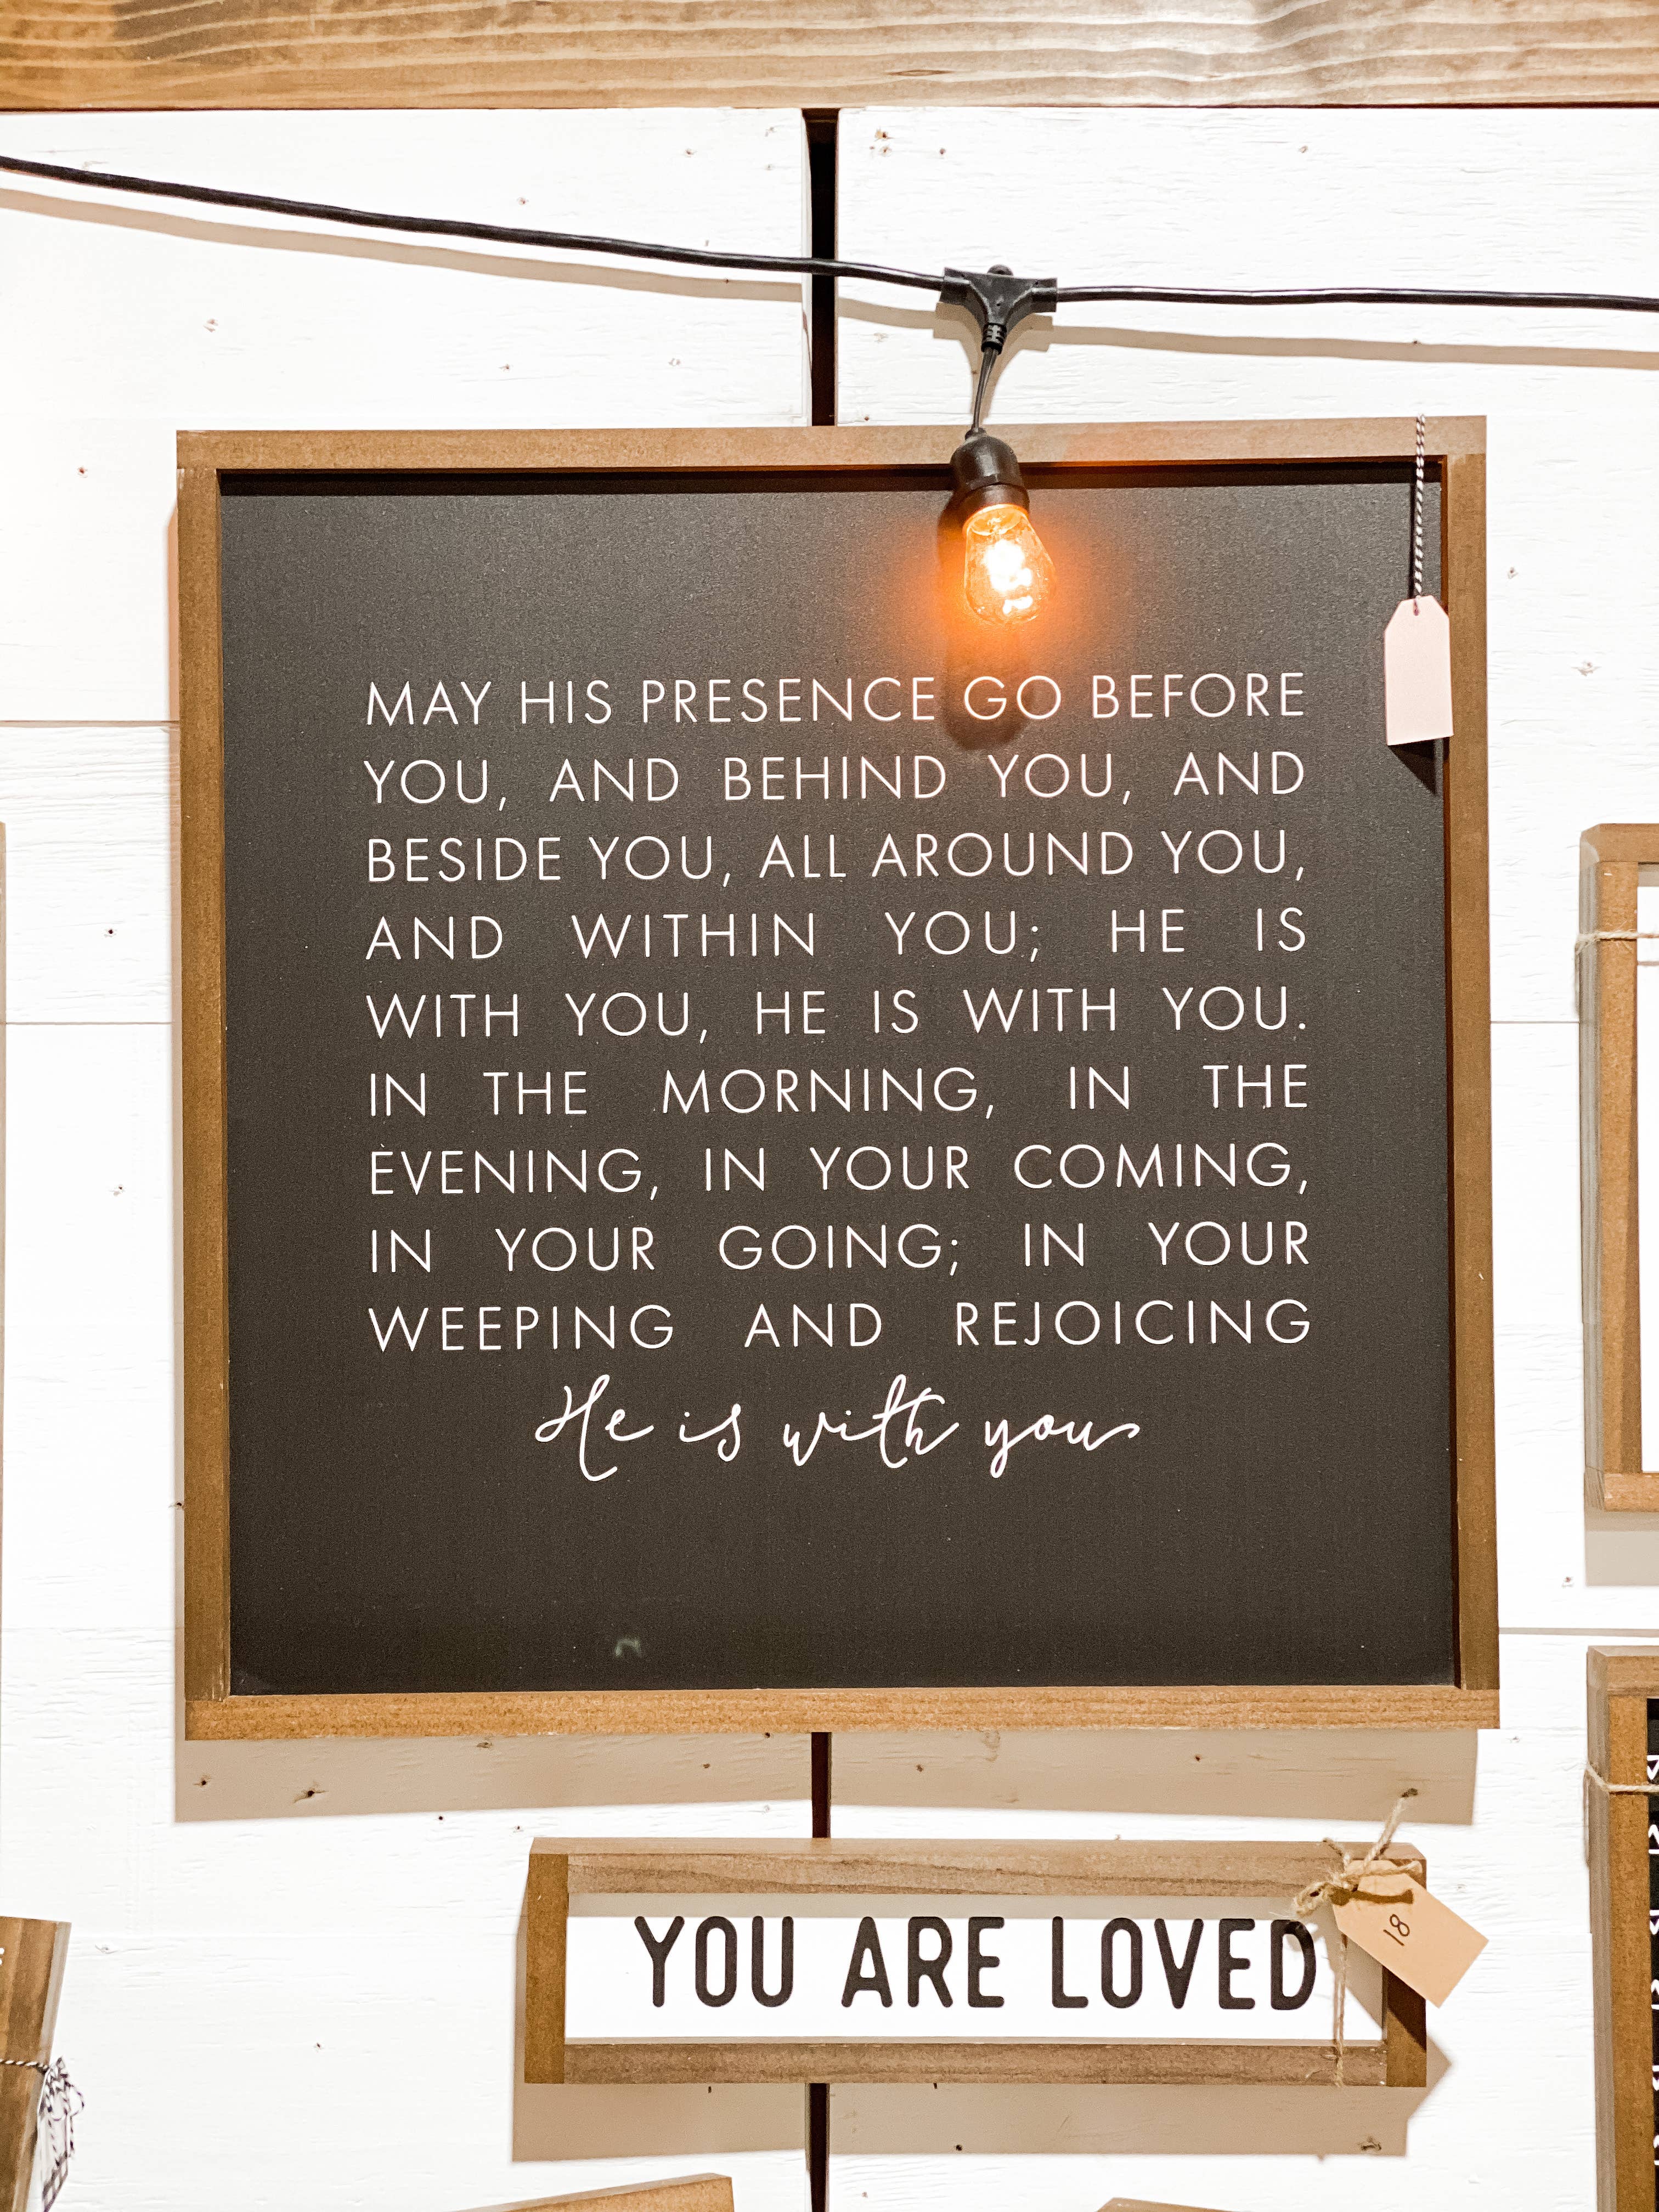 MAY HIS PRESENCE GO BEFORE
YOU, AND BEHIND YOU, AND
BESIDE YOU, ALL AROUND YOU,
AND WITHIN YOU; HE IS
WITH YOU, HE IS WITH YOU.
IN THE MORNING, IN THE
EVENING, IN YOUR COMING,
IN YOUR GOING; IN YOUR
WEEPING AND REJOICING
He is with you
YOU ARE LOVED
18